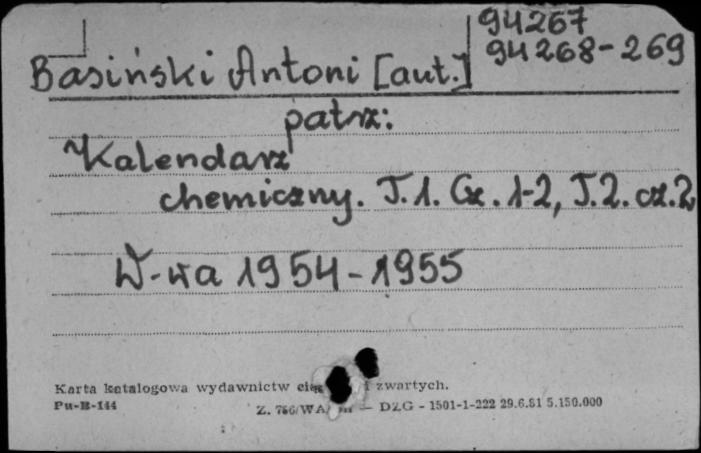 94267
94268-269
Basiński Antoni [aut.]
patrz:
Kalendarz
chemiczny. T.1. Cz. 1-2, T.2. cz.2
W-wa 1954-1955
Karta katalogowa wydawnictw i zwartych.
Pu-B-144
DZG - 1501-1-222 29.6.81 5.150.000